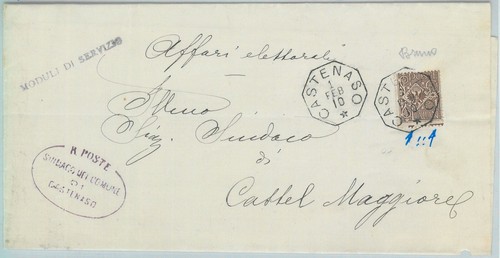 MODULI DI SERVIZIO
Affari elettorali
Bruno
CASTENASO
1
FEB
10
CASTENASO
Illmo
Sig. Sindaco
di
Castel Maggiore
R. POSTE
SINDACO DEL COMUNE
DI
CASTENASO